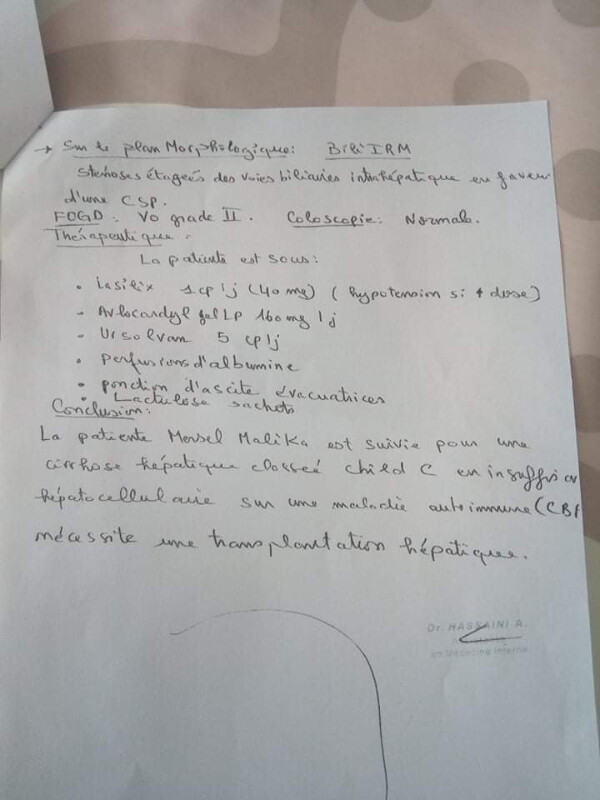 → Sur le plan Morphologique: Bili IRM
Sténoses étagées des voies biliaires intrahépatique en faveur
d'une CSP.
FOGD: VO grade II. Coloscopie: Normale.
Thérapeutique:
La patiente est sous:
• Lasilix 1cp/j (40 mg) (hypotension si ↑ dose)
• Avlocardyl gel LP 160 mg/j
• Ursolvan 5 cp/j
• perfusions d'albumine
• ponction d'ascite évacuatrices
• Lactulose sachets
Conclusion:
La patiente Mersel Malika est suivie pour une
cirrhose hépatique classée child C en insuffisan
hépatocellulaire sur une maladie autoimmune (CBP
nécessite une transplantation hépatique.
Dr. HASSAINI A.
en Médecine Interne